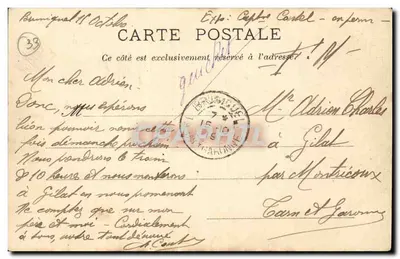 Bruniquel 1er Octobre
Expr: Capt Castel - en perm -
33
CARTE POSTALE
Ce côté est exclusivement réservé à l'adresse
Mon cher Adrien.
Donc, nous espérons
bien pouvoir venir cette
fois dimanche prochain
Nous prendrons le train
D 10 heure et nous monterons
à Gilat en nous promenant
Ne comptez que sur mon
père et moi - Cordialement
à tous votre tout dévoué
BRUNIQUEL
Mr Adrien Charles
à Gilat
par Montricoux
Tarn et Garonne